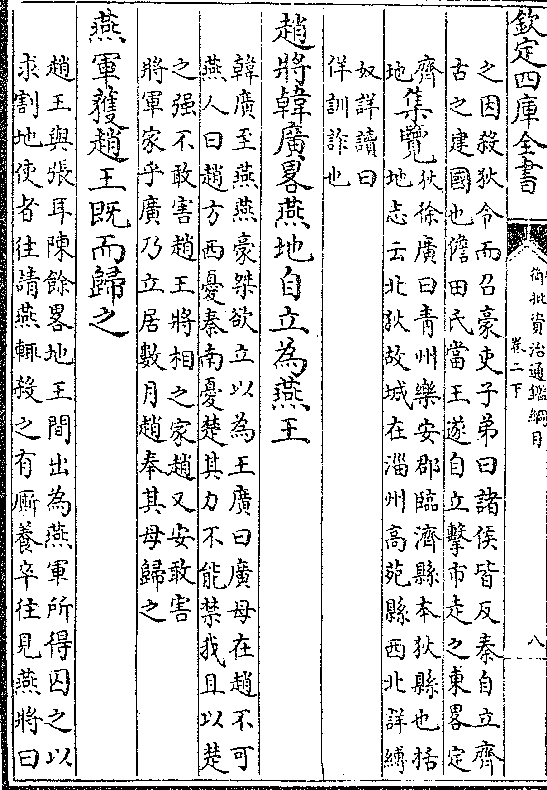 欽定四庫全書
御批資治通鑑綱目
卷二下
八
之因殺狄令而召豪吏子弟曰諸侯皆反秦自立齊
古之建國也儋田氏當王遂自立擊市走之東畧定
齊
地
集覽
狄徐廣曰青州樂安郡臨濟縣本狄縣也括
地志云北狄故城在淄州高苑縣西北詳縛
奴詳讀曰
佯訓詐也
趙將韓廣畧燕地自立為燕王
韓廣至燕燕豪桀欲立以為王廣曰廣母在趙不可
燕人曰趙方西憂秦南憂楚其力不能禁我且以楚
之强不敢害趙王將相之家趙又安敢害
將軍家乎廣乃立居數月趙奉其母歸之
燕軍獲趙王既而歸之
趙王與張耳陳餘畧地王間出為燕軍所得囚之以
求割地使者往請燕輒殺之有廝養卒往見燕將曰